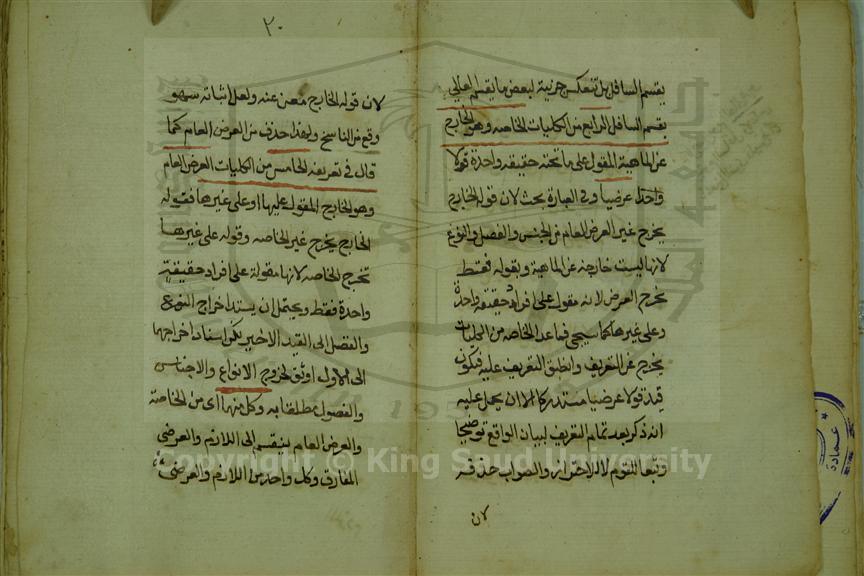 يقسم السافل بل تنعكس جزئية لبعض ما يقسم العالي
يقسم السافل الرابع من الكليات الخاصة وهو الخارج
عن الماهية المقول على ما تحته حقيقة واحدة قولا
واحدا عرضيا وفي العبارة بحث لان قوله الخارج
يخرج غير العرض العام من الجنس والفصل والنوع
لانها ليست خارجة عن الماهية وبقوله فقط
يخرج العرض لانه مقول على افراد حقيقة واحدة
وعلى غيرها كما سيجي فما عدا الخاصة من الكليات
يخرج عن التعريف وانطبق التعريف عليه فتكون
قيد قولا عرضيا مستدركا الا ان يحمل عليه
انه ذكر بعد تمام التعريف لبيان الواقع توضيحا
وتبعا للقوم لا للاحتراز والصواب حذفه
لان
٢٠
لان قوله الخارج مغن عنه ولعل اثباته سهو
وقع من الناسخ ولهذا حذف من العرض العام كما
قال في تعريفه الخامس من الكليات العرض العام
وهو الخارج المقول عليها وعلى غيرها فقوله
الخارج يخرج غير الخاصة وقوله على غيرها
تخرج الخاصة لانها مقولة على افراد حقيقة
واحدة فقط ويحتمل ان يسند اخراج النوع
والفصل الى القيد الاخير لكن اسناد اخراجهما
الى الاول اوثق لخروج الانواع والاجناس
والفصول مطلقا به وكل منهما اي من الخاصة
والعرض العام ينقسم الى اللازم والعرضي
المفارق وكل واحد من اللازم والعرضي
Copyright © King Saud University
عمادة